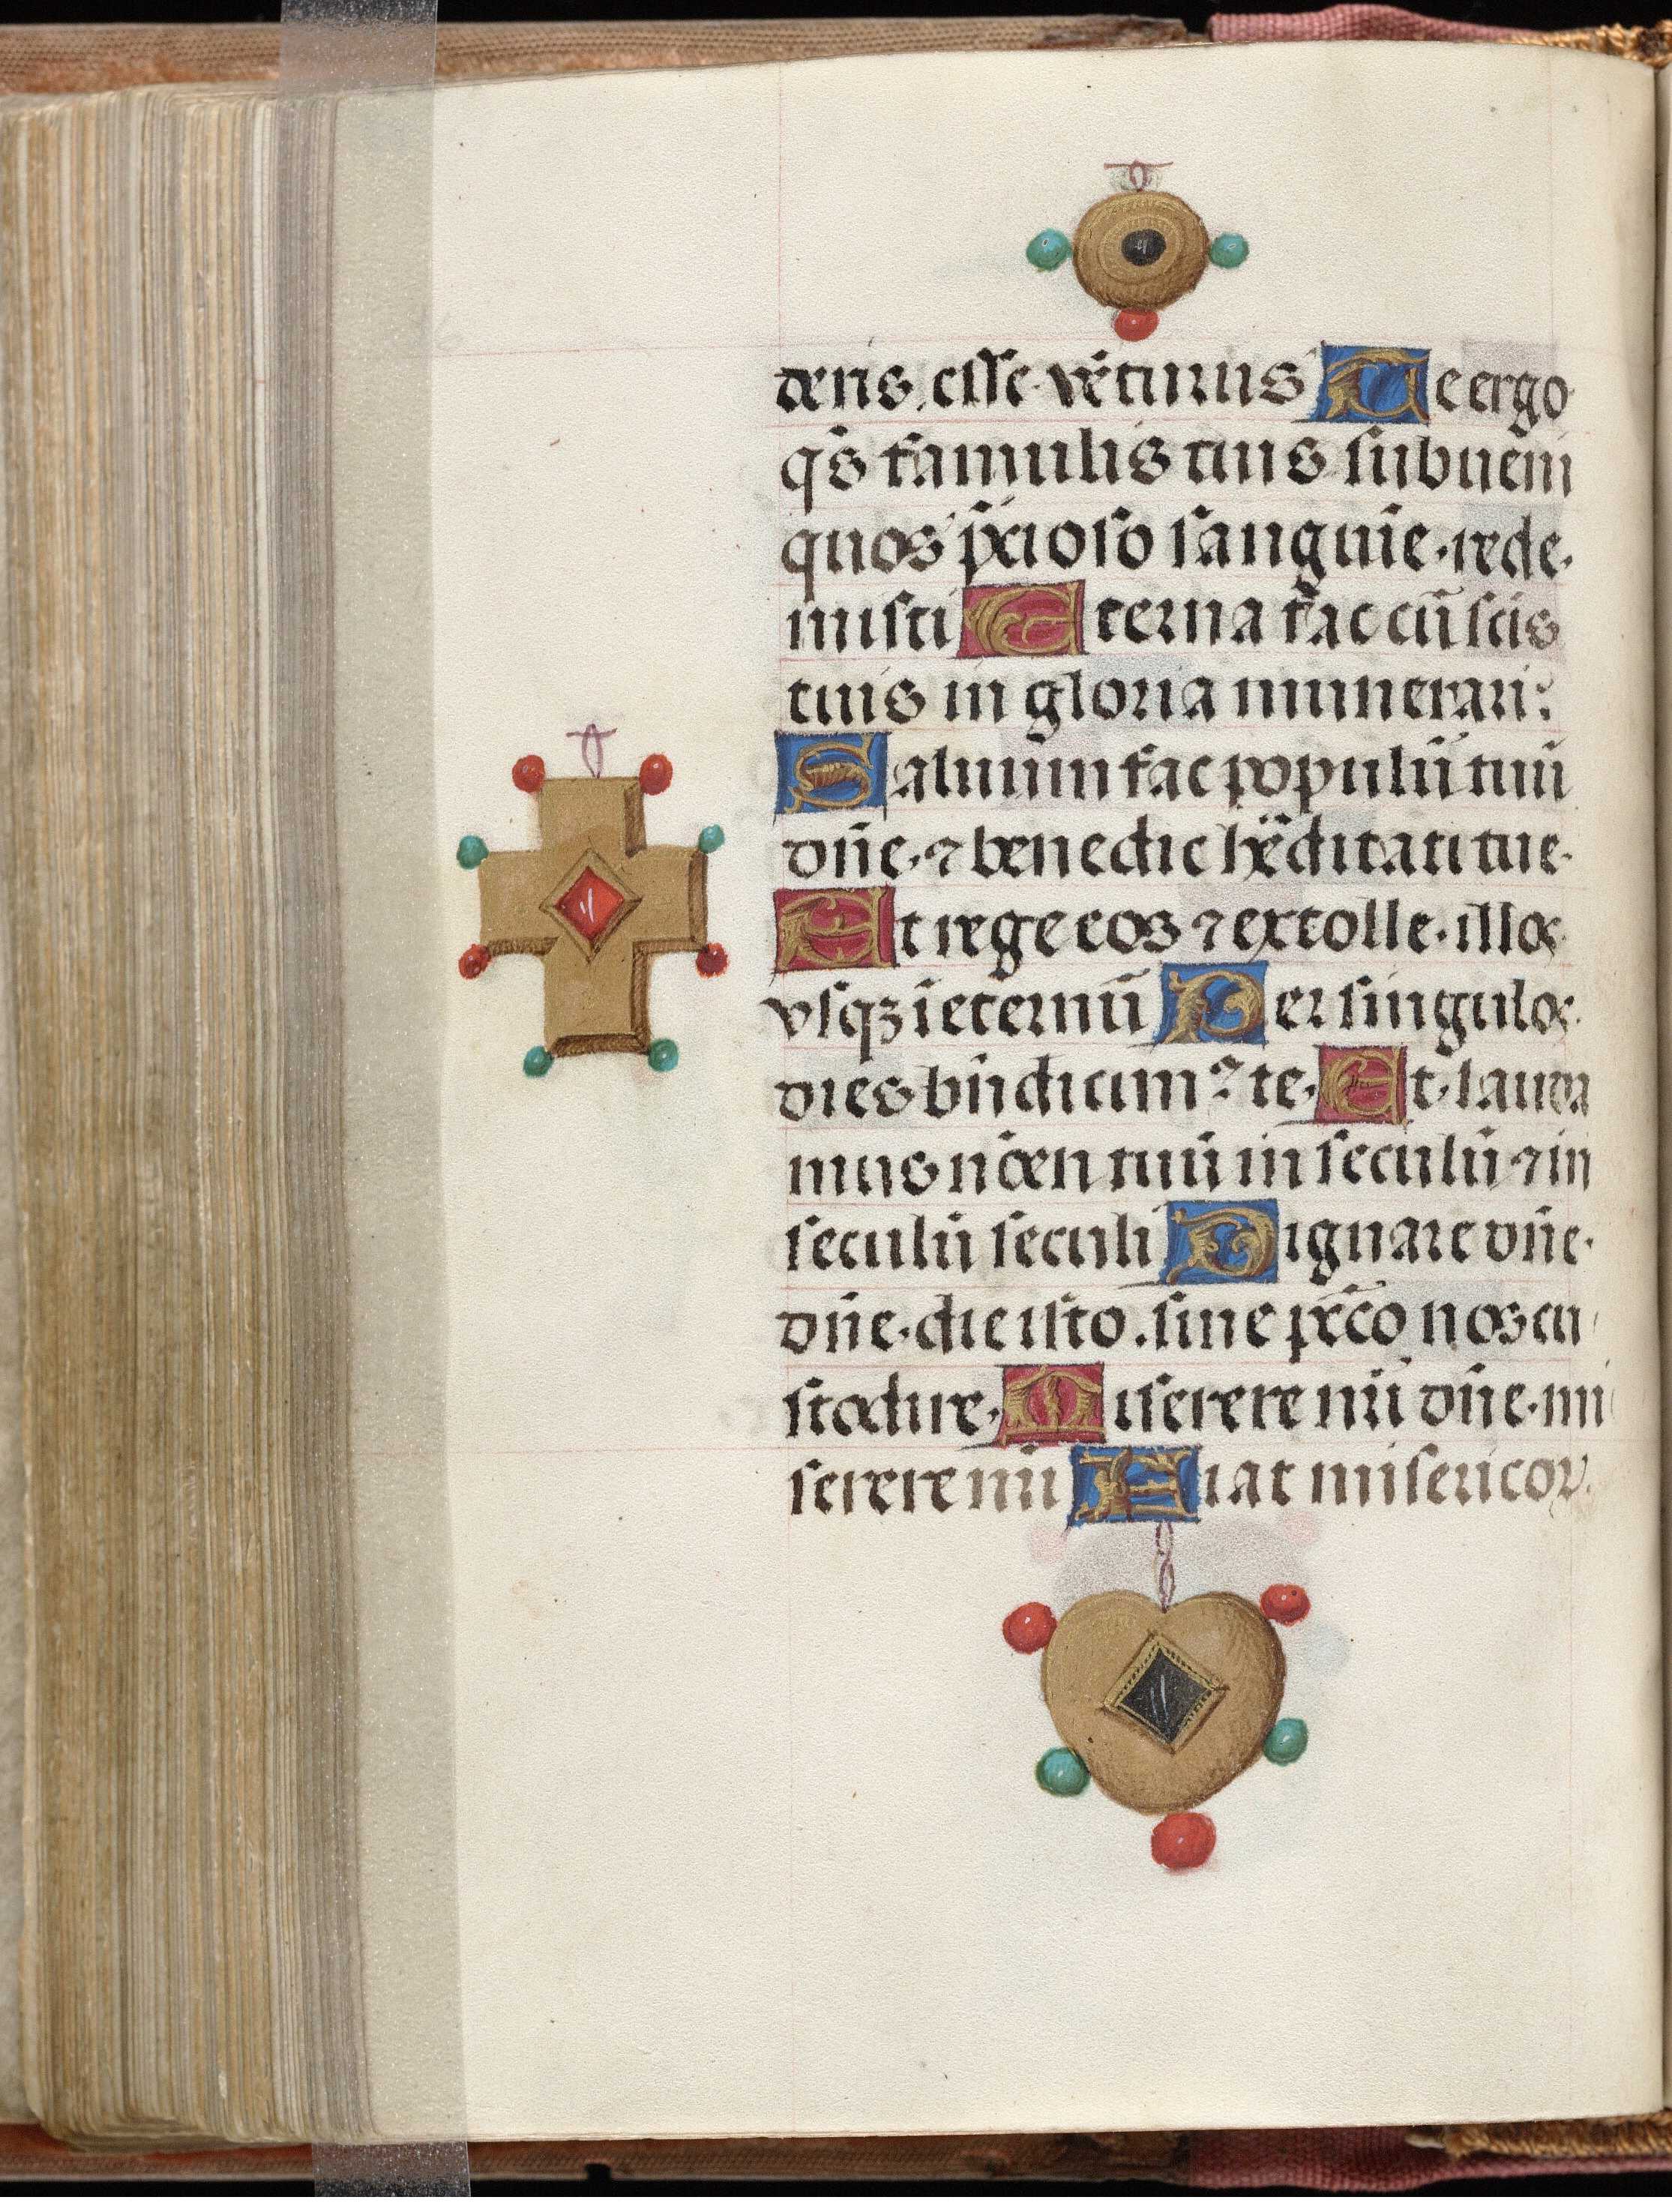 dens esse vẽturus Te ergo
qs̃ famulis tuis subueni
quos p̃cioso sanguĩe rede
misti Eterna fac cũ sctĩs
tuis in gloria munerari:
Saluum fac populũ tuũ
dñe ⁊ benedic hẽditati tue
Et rege eos ⁊ extolle illos
vsqꝫ ĩ eternũ Per singulos
dies bñdicimꝰ te Et lauda
mus nõen tuũ in seculũ ⁊ in
seculũ seculi Dignare dñe
dñe die isto sine pc̃co nos cu
stodire Miserere nr̃i dñe mi
serere nr̃i Fiat misericor